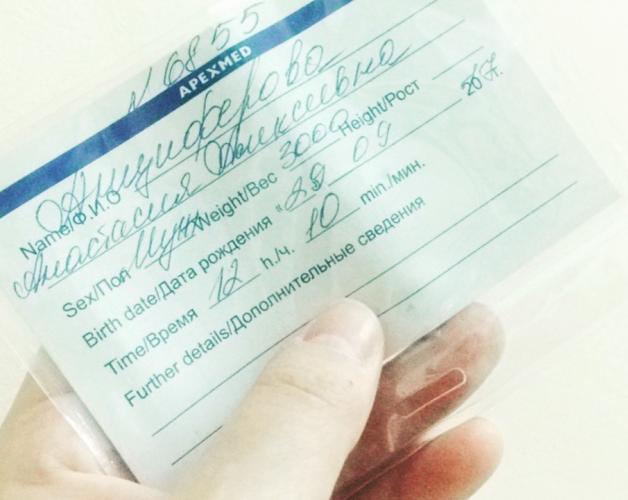 N 6855
APEXMED
Name/Ф.И.О Анциферова
Анастасия
Sex/Пол Муж Weight/Вес 3000 Height/Рост
Birth date/Дата рождения " 09
Time/Время 12 h/ч. 10 min./мин.
Further details/Дополнительные сведения